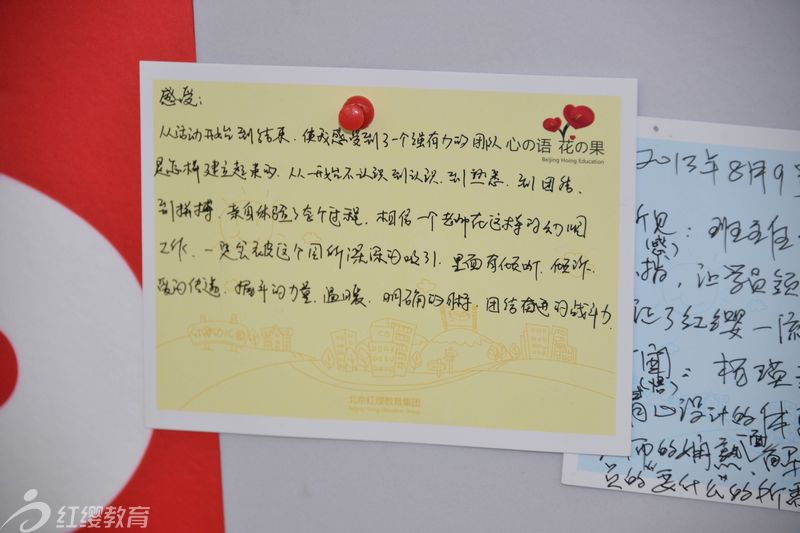 感受:
从活动开始到结束,使我感受到了一个强有力的团队
是怎样建立起来的,从一开始不认识到认识,到熟悉,到团结,
到拼搏,亲自体验了全个过程,相信一个老师在这样的幼儿园
工作,一定会被这个团所深深的吸引,里面有倾听,倾诉,
爱的传递,拼斗的力量,温暖,明确的目标,团结奋进的战斗力
心の语 花の果
Beijing Hoing Education
北京红缨教育集团
Beijing Hoing Education Group
2013年8月9
见:班主任
(感)
指,让学员领
证了红缨一流
园:杨瑾
(悟)
心设计的体
师的娴熟、面
员的“要什么”的折
红缨教育